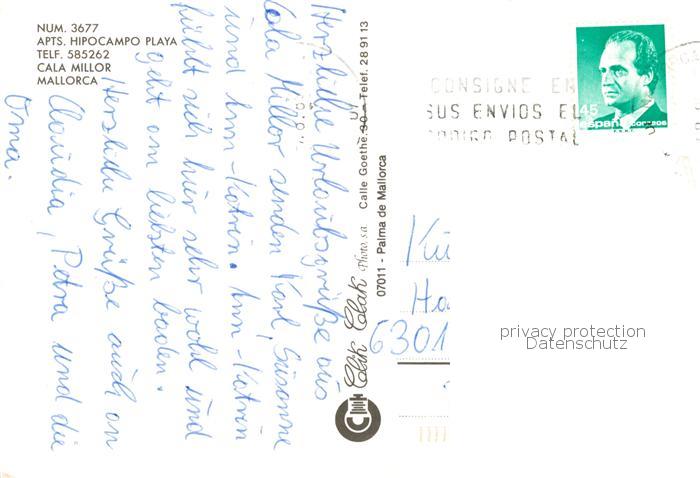 NUM. 3677
APTS. HIPOCAMPO PLAYA
TELF. 585262
CALA MILLOR
MALLORCA
Herzliche Urlaubsgrüße aus
Cala Millor senden Karl, Susanne
und Ann-Katrin. Ann-Katrin
fühlt sich hier sehr wohl und
geht am liebsten baden.
Herzliche Grüße auch an
Claudia, Petra und die
Oma.
Clik Clak Photo, s.a. Calle Goethe, 30 - Telef. 28 91 13
07011 - Palma de Mallorca
CONSIGNE EN
SUS ENVIOS EL
CODIGO POSTAL
45
españa correos
Kü
Ha
6301
privacy protection
Datenschutz